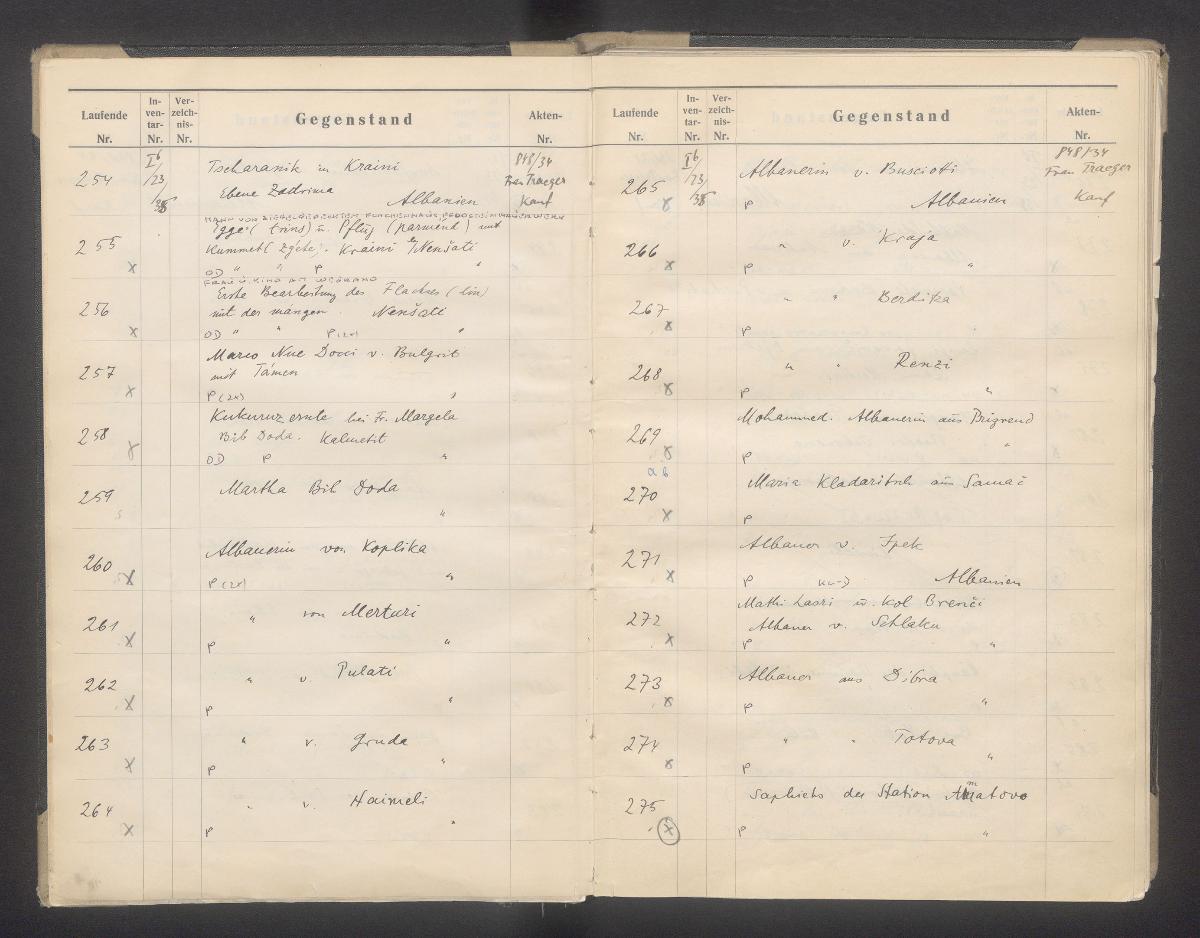 Laufende Nr.
In-ven-tar-Nr.
Ver-zeich-nis-Nr.
Gegenstand
Akten-Nr.
254
I b /23 /38
Tscharanik in Kraini
848/34
Ebene Zadrima
Frau Traeger
Albanien
Kauf
255
Egge (trins) u. Pflug (parmend) mit
Kummet ( Kraini b/ Nenšati
x OD " " P "
FRAU U. KIND AM WEGRAND
256
Erste Bearbeitung des Flachses (lin)
mit der mángen. Nenšati
x OD " " P (2x) "
257
Marco Nue Doci v. Bulgrit
mit Tamen
x P (2x) "
258
Kukuruzernte bei Fr. Margela
Bib Doda. Kalmetit
x OD P "
259
Martha Bib Doda
"
260
Albanerin von Koplika
x P (2x) "
261
" von Merturi
x P "
262
" v. Pulati
x P "
263
" v. Gruda
x P "
264
" v. Haimeli
x P "
Laufende Nr.
In-ven-tar-Nr.
Ver-zeich-nis-Nr.
Gegenstand
Akten-Nr.
265
I b /23 /38
Albanerin v. Busciotti
848/34
Frau Traeger
x P Albanien
Kauf
266
" v. Kraja
x P "
267
" " Berdika
x P
268
" " Renzi
x P "
269
Mohammed. Albanerin aus Prigrend
x P "
a b
270
Maria Kladaritsch aus Samač
x P
271
Albaner v. Ipek
x P Albanien
272
Mathi Lazri u. Kol Brenči
Albaner v. Schlaku
x P "
273
Albaner aus Dibra
x P "
274
" " Totova
x P "
275
Saphiehs der Station Amatovo
x P "